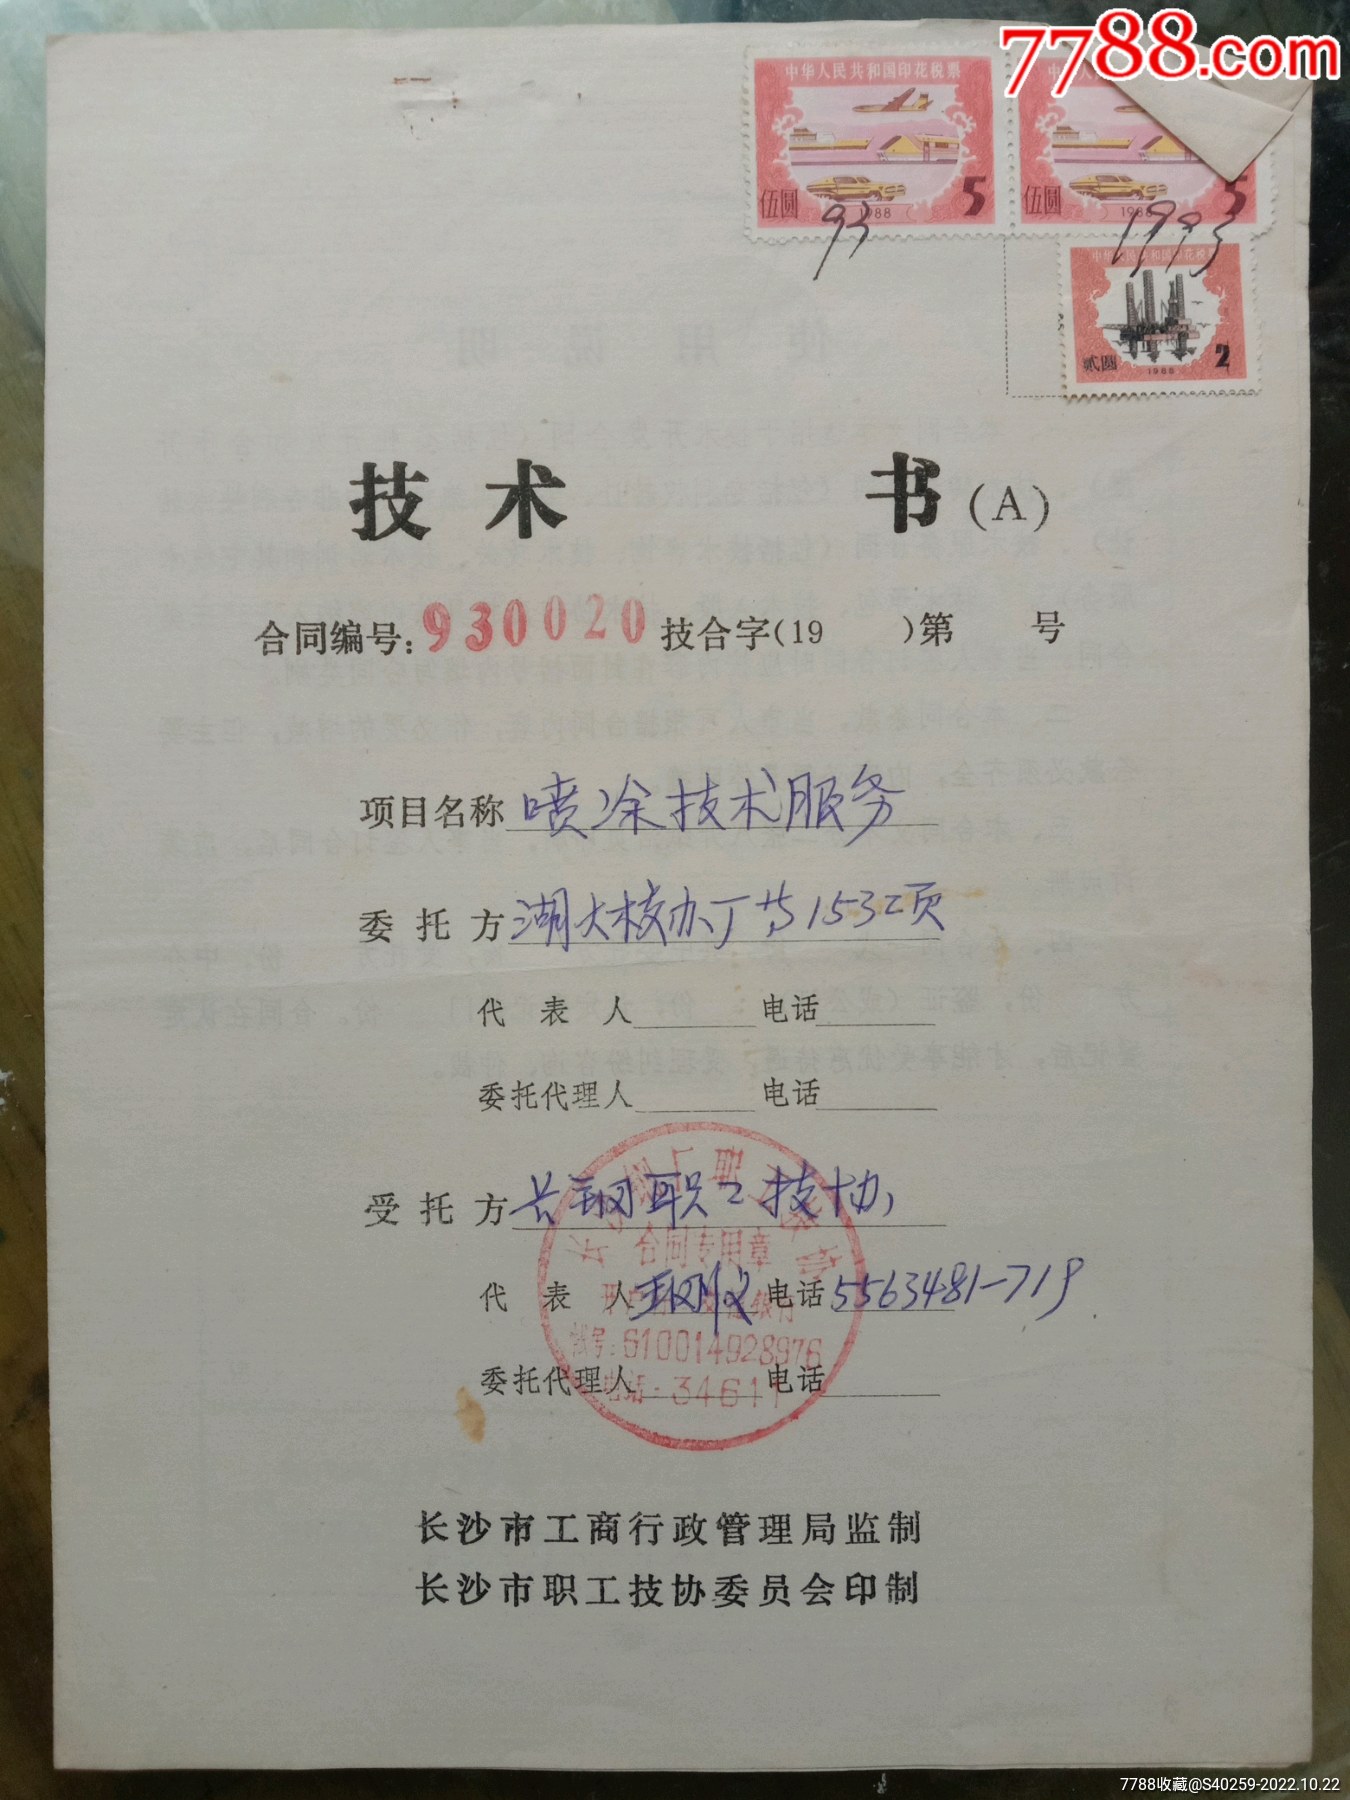 7788.com
中华人民共和国印花税票
伍圆 1988 5
伍圆 1988 5
93 1993
中华人民共和国印花税票
贰圆 1988 2
技术 书(A)
合同编号:930020技合字(19 )第 号
项目名称 喷涂技术服务
委托方 湖大校办厂等153工项
代表人 电话
委托代理人 电话
受托方 长钢职工技协
合同专用章
代表人 电话 5563481-719
帐号:610014928976
委托代理人 电话
电话:34611
长沙市工商行政管理局监制
长沙市职工技协委员会印制
7788收藏@S40259-2022.10.22